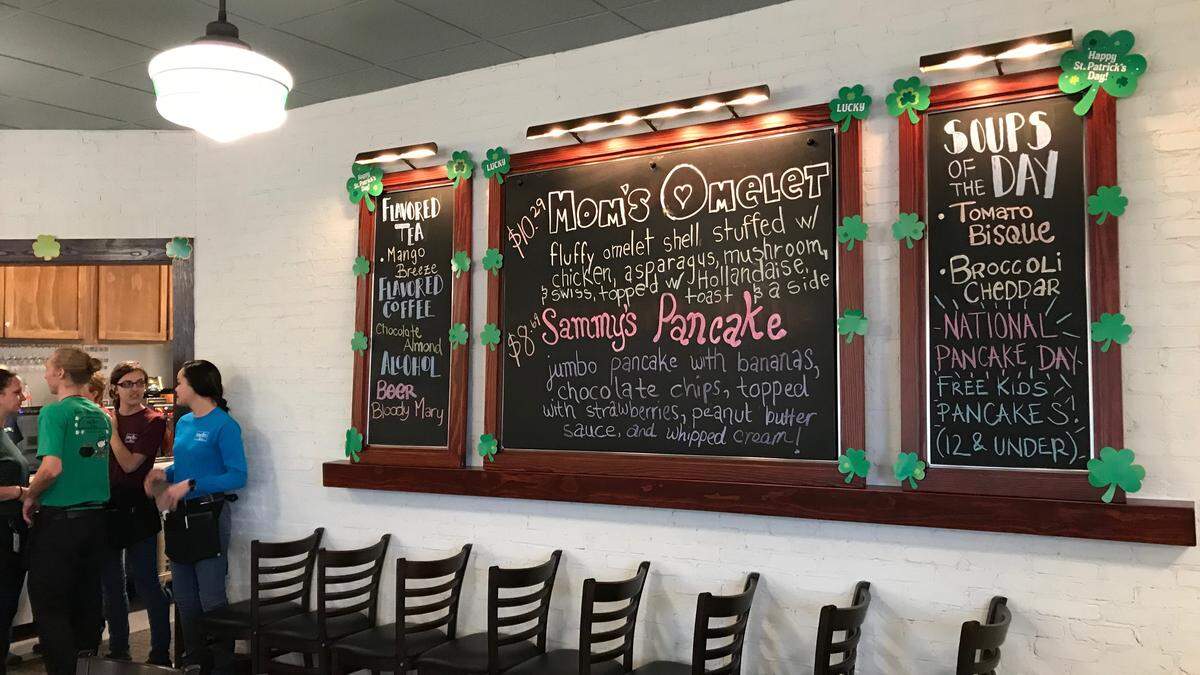 Happy
St. Patrick's
Day!
FLAVORED
TEA
• Mango
Breeze
FLAVORED
COFFEE
Chocolate
Almond
ALCOHOL
BEER
Bloody Mary
LUCKY
LUCKY
$10.29
MOM'S OMELET
fluffy omelet shell stuffed w/
chicken, asparagus, mushroom,
& swiss, topped w/ Hollandaise,
toast & a side
$8.69
Sammy's Pancake
jumbo pancake with bananas,
chocolate chips, topped
with strawberries, peanut butter
sauce, and whipped cream!
Happy
St. Patrick's
Day!
SOUPS
OF
THE DAY
• TOMATO
BISQUE
• BROCCOLI
CHEDDAR
NATIONAL
PANCAKE DAY
FREE KIDS'
PANCAKES!
(12 & UNDER)